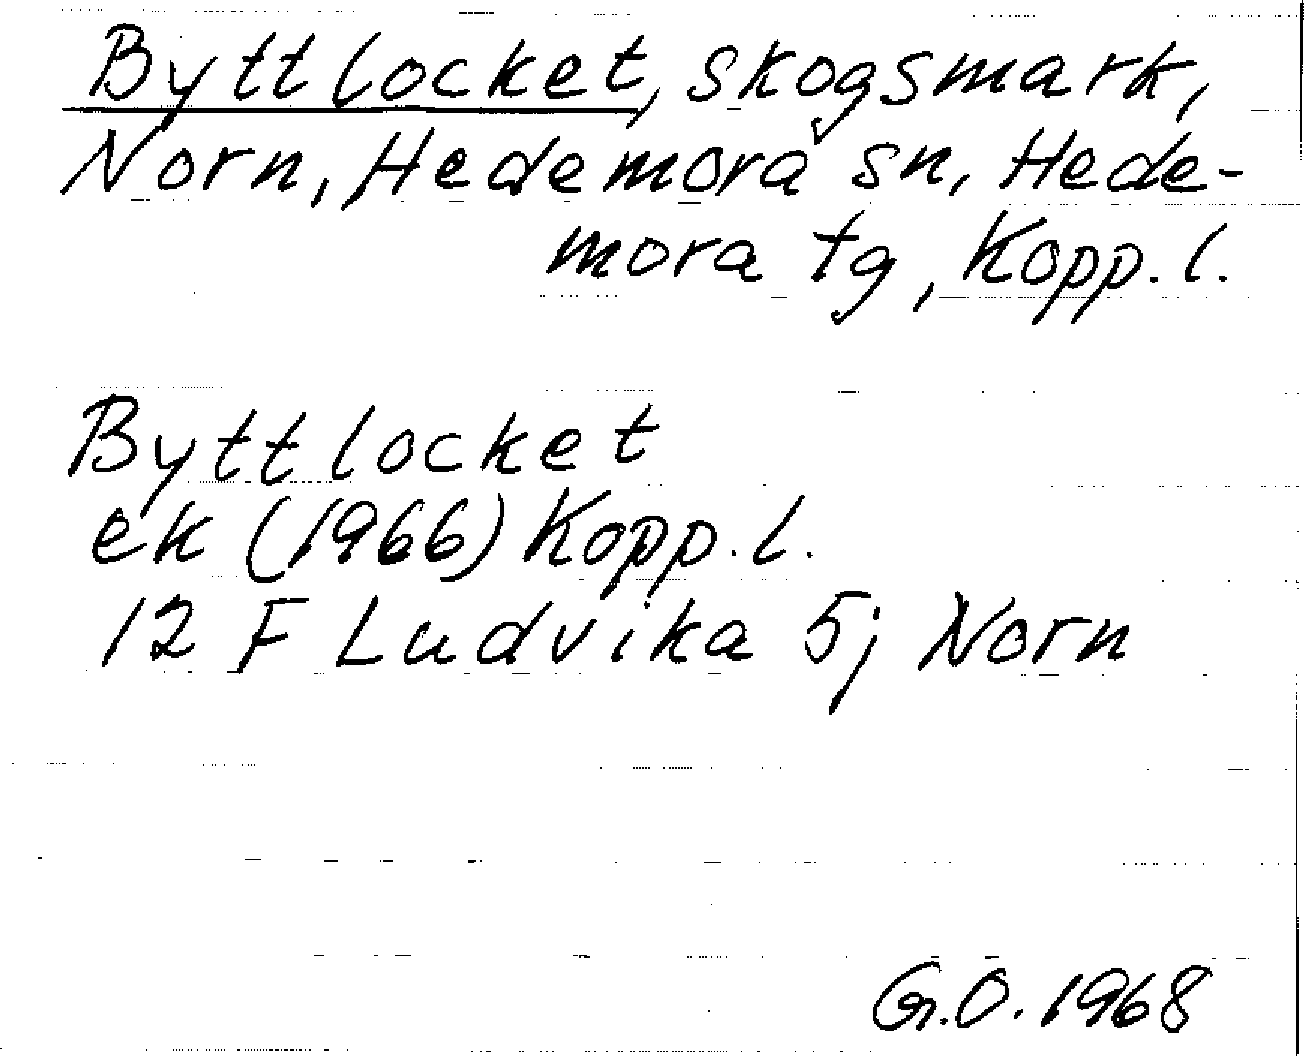 Byttlocket, skogsmark,
Norn, Hedemora sn, Hede-
mora tg, Kopp. l.
Byttlocket
ek (1966) Kopp. l.
12 F Ludvika 5j Norn
G.O. 1968